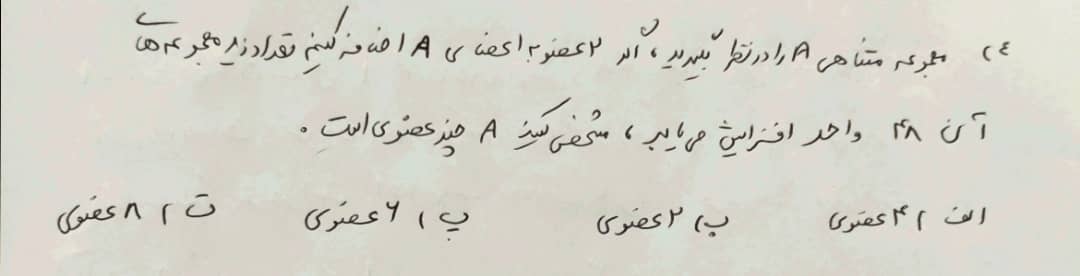 ٤) مجموعه متناهی A را در نظر بگیرید، اگر ۲ عضو به اعضای A اضافه کنیم تعداد زیرمجموعه‌های
آن ۴۸ واحد افزایش می‌یابد، مشخص کنید A چند عضوی است.
الف) ۴ عضوی ب) ۲ عضوی پ) ۶ عضوی ت) ۸ عضوی